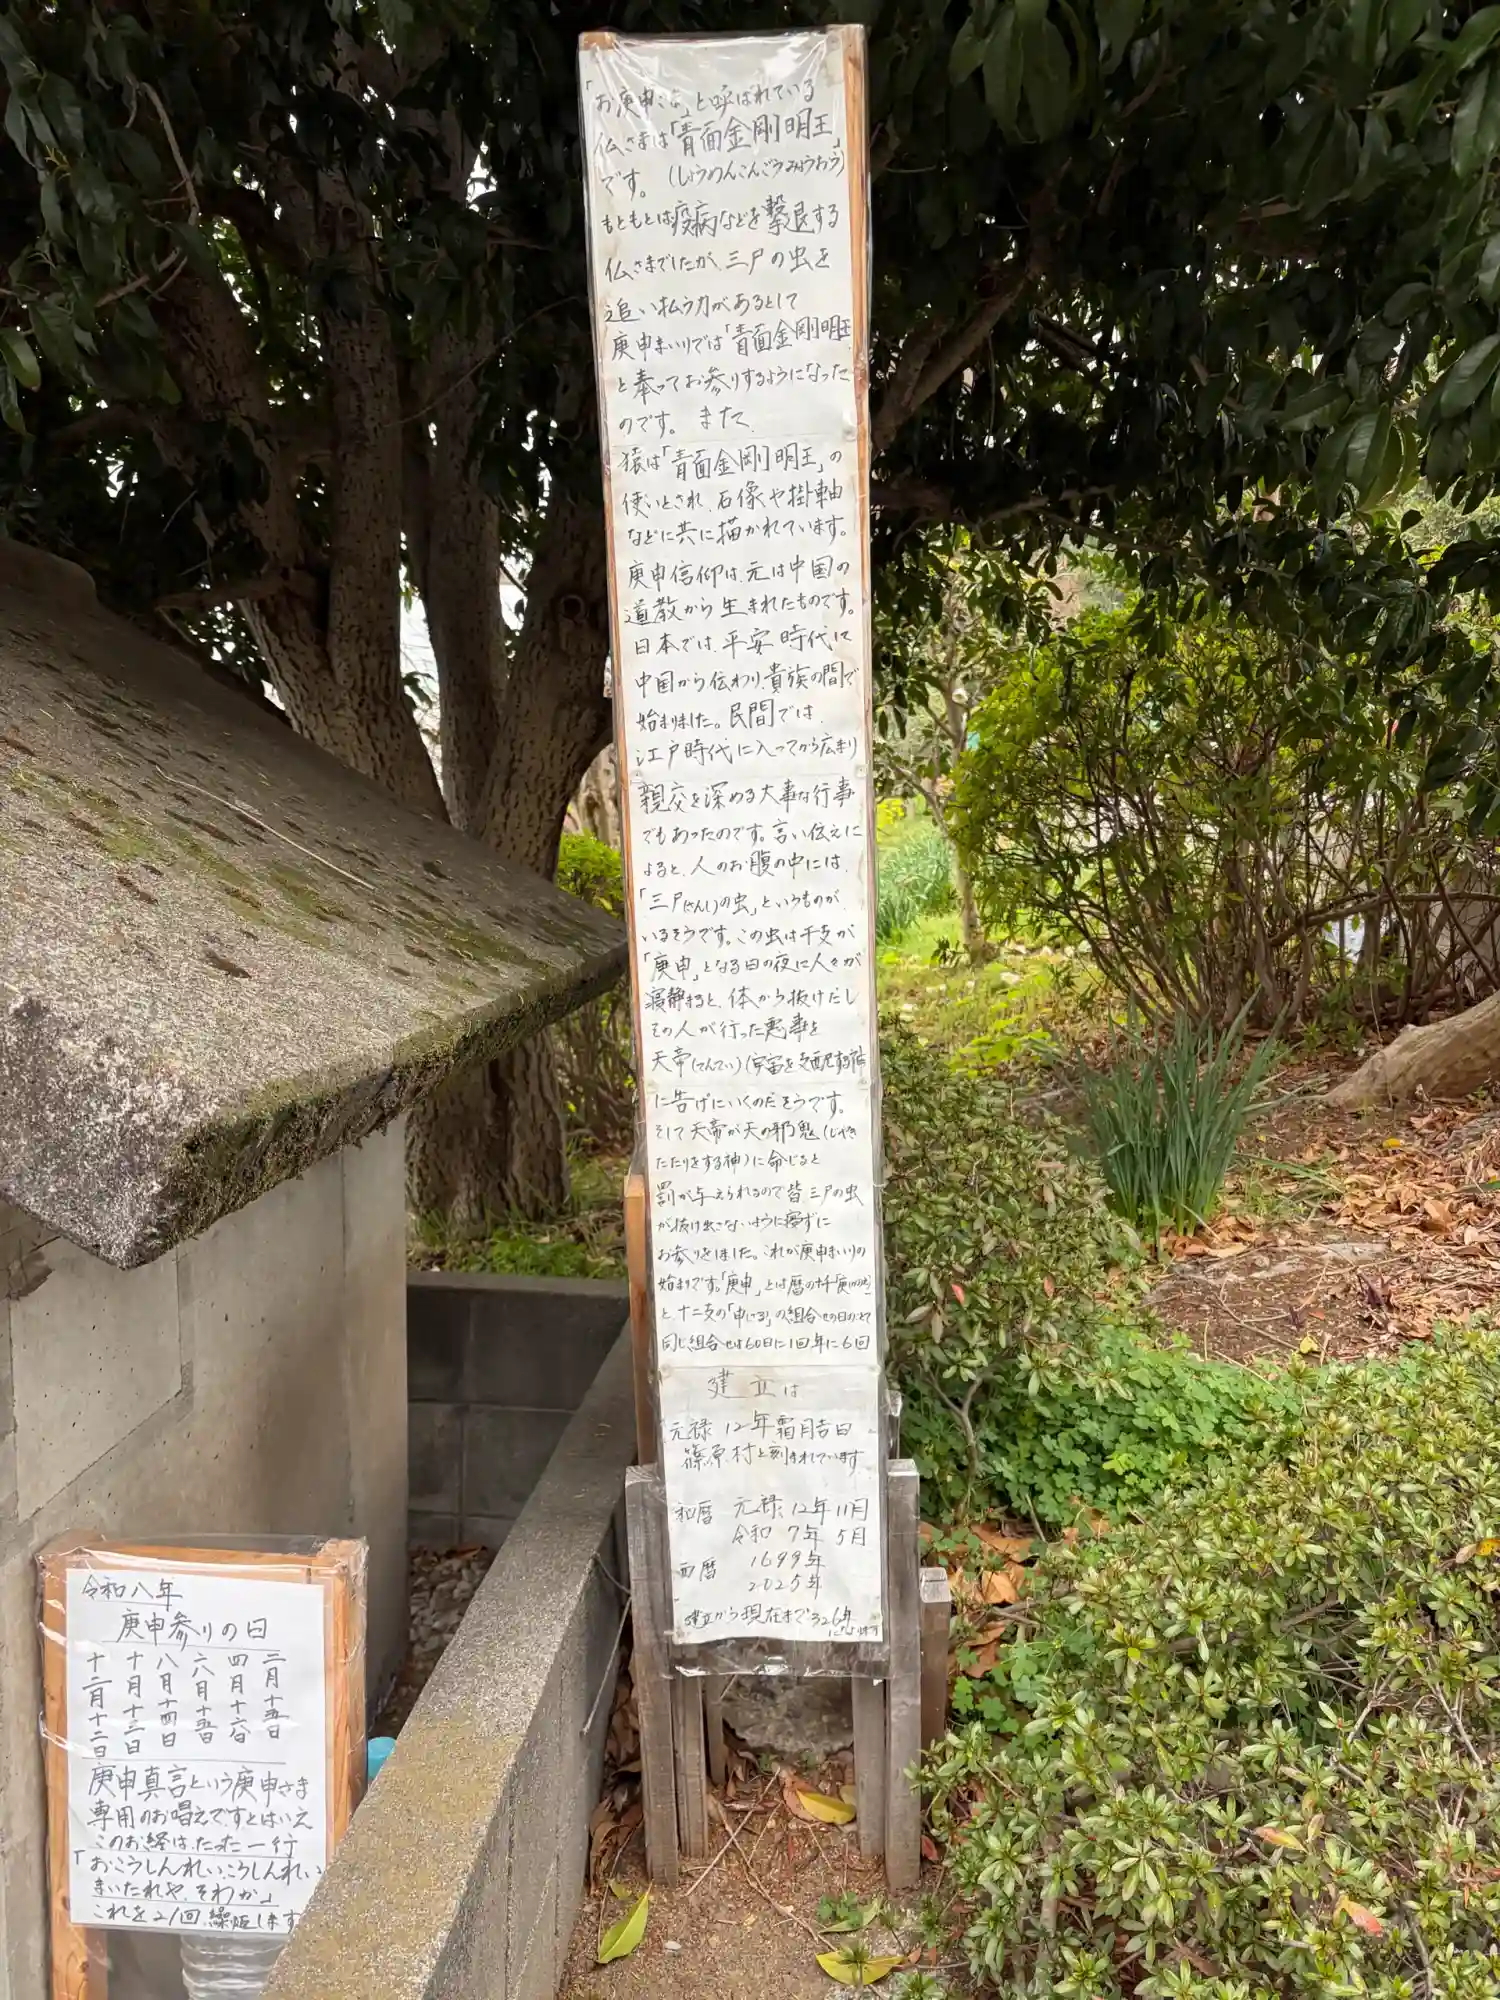 「お庚申さま」と呼ばれている
仏さまは「青面金剛明王」
です。(しょうめんこんごうみょうおう)
もともとは疫病などを撃退する
仏さまでしたが、三尸の虫を
追い払う力があるとして
庚申まいりでは「青面金剛明王」
と奉ってお参りするようになった
のです。また、
猿は「青面金剛明王」の
使いとされ、石像や掛軸
などに共に描かれています。
庚申信仰は、元は中国の
道教から生まれたものです。
日本では、平安時代に
中国から伝わり、貴族の間で
始まりました。民間では、
江戸時代に入ってから広まり
親交を深める大事な行事
でもあったのです。言い伝えに
よると、人のお腹の中には、
「三尸(さんし)の虫」というものが、
いるそうです。この虫は干支が
「庚申」となる日の夜に人々が
寝静まると、体から抜けだし
その人が行った悪事を
天帝(てんてい)(宇宙を支配する神
に告げにいくのだそうです。
そして天帝が天の邪鬼(じゃき
たたりをする神)に命じると
罰が与えられるので皆三尸の虫
が抜け出さないように寝ずに
お参りをしました。これが庚申まいりの
始まりです。「庚申」とは暦の十干「庚
と、十二支の「申(さる)」の組合せの日のことで
同じ組合せは60日に1回年に6回
建立は
元禄12年霜月吉日
篠原村と刻まれています
和暦 元禄12年11月
令和 7年 5月
西暦 1699年
2025年
建立から現在まで326年
令和八年
庚申参りの日
二月十五日
四月十六日
六月十五日
八月十四日
十月十三日
十二月十二日
庚申真言という庚申さま
専用のお唱えですとはいえ
このお経は、たった一行
「おこうしんれい、こうしんれい
まいたれや、そわか」
これを21回、繰返します